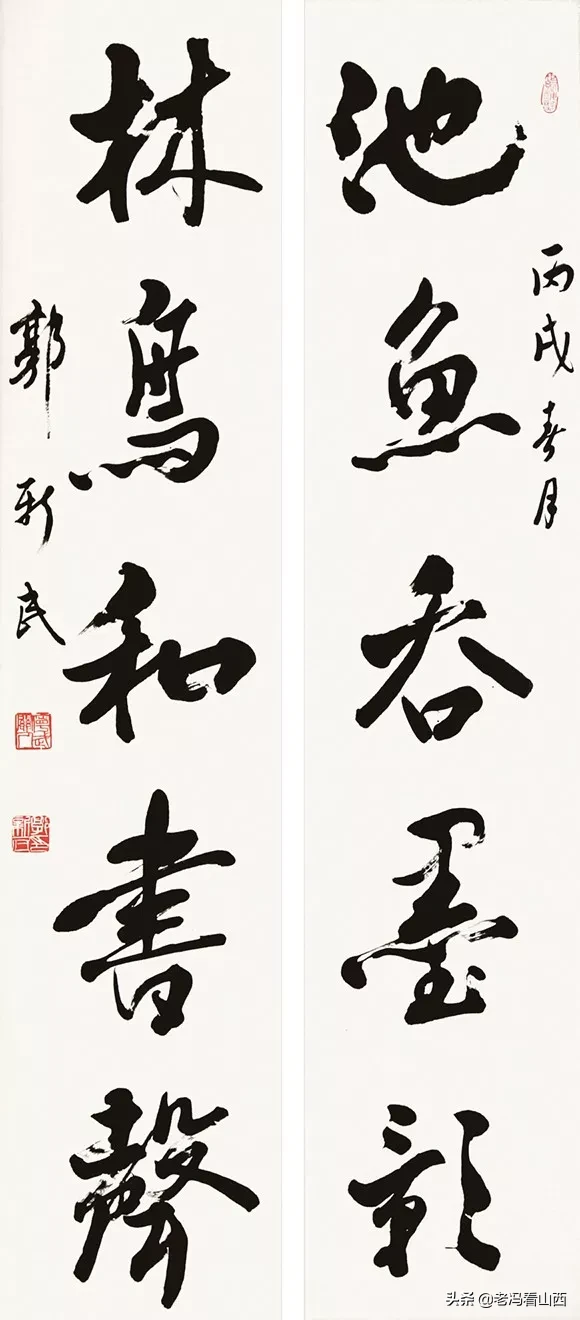 丙戌春月
池魚吞墨影
林鳥和書聲
郭新民
头条 @老冯看山西